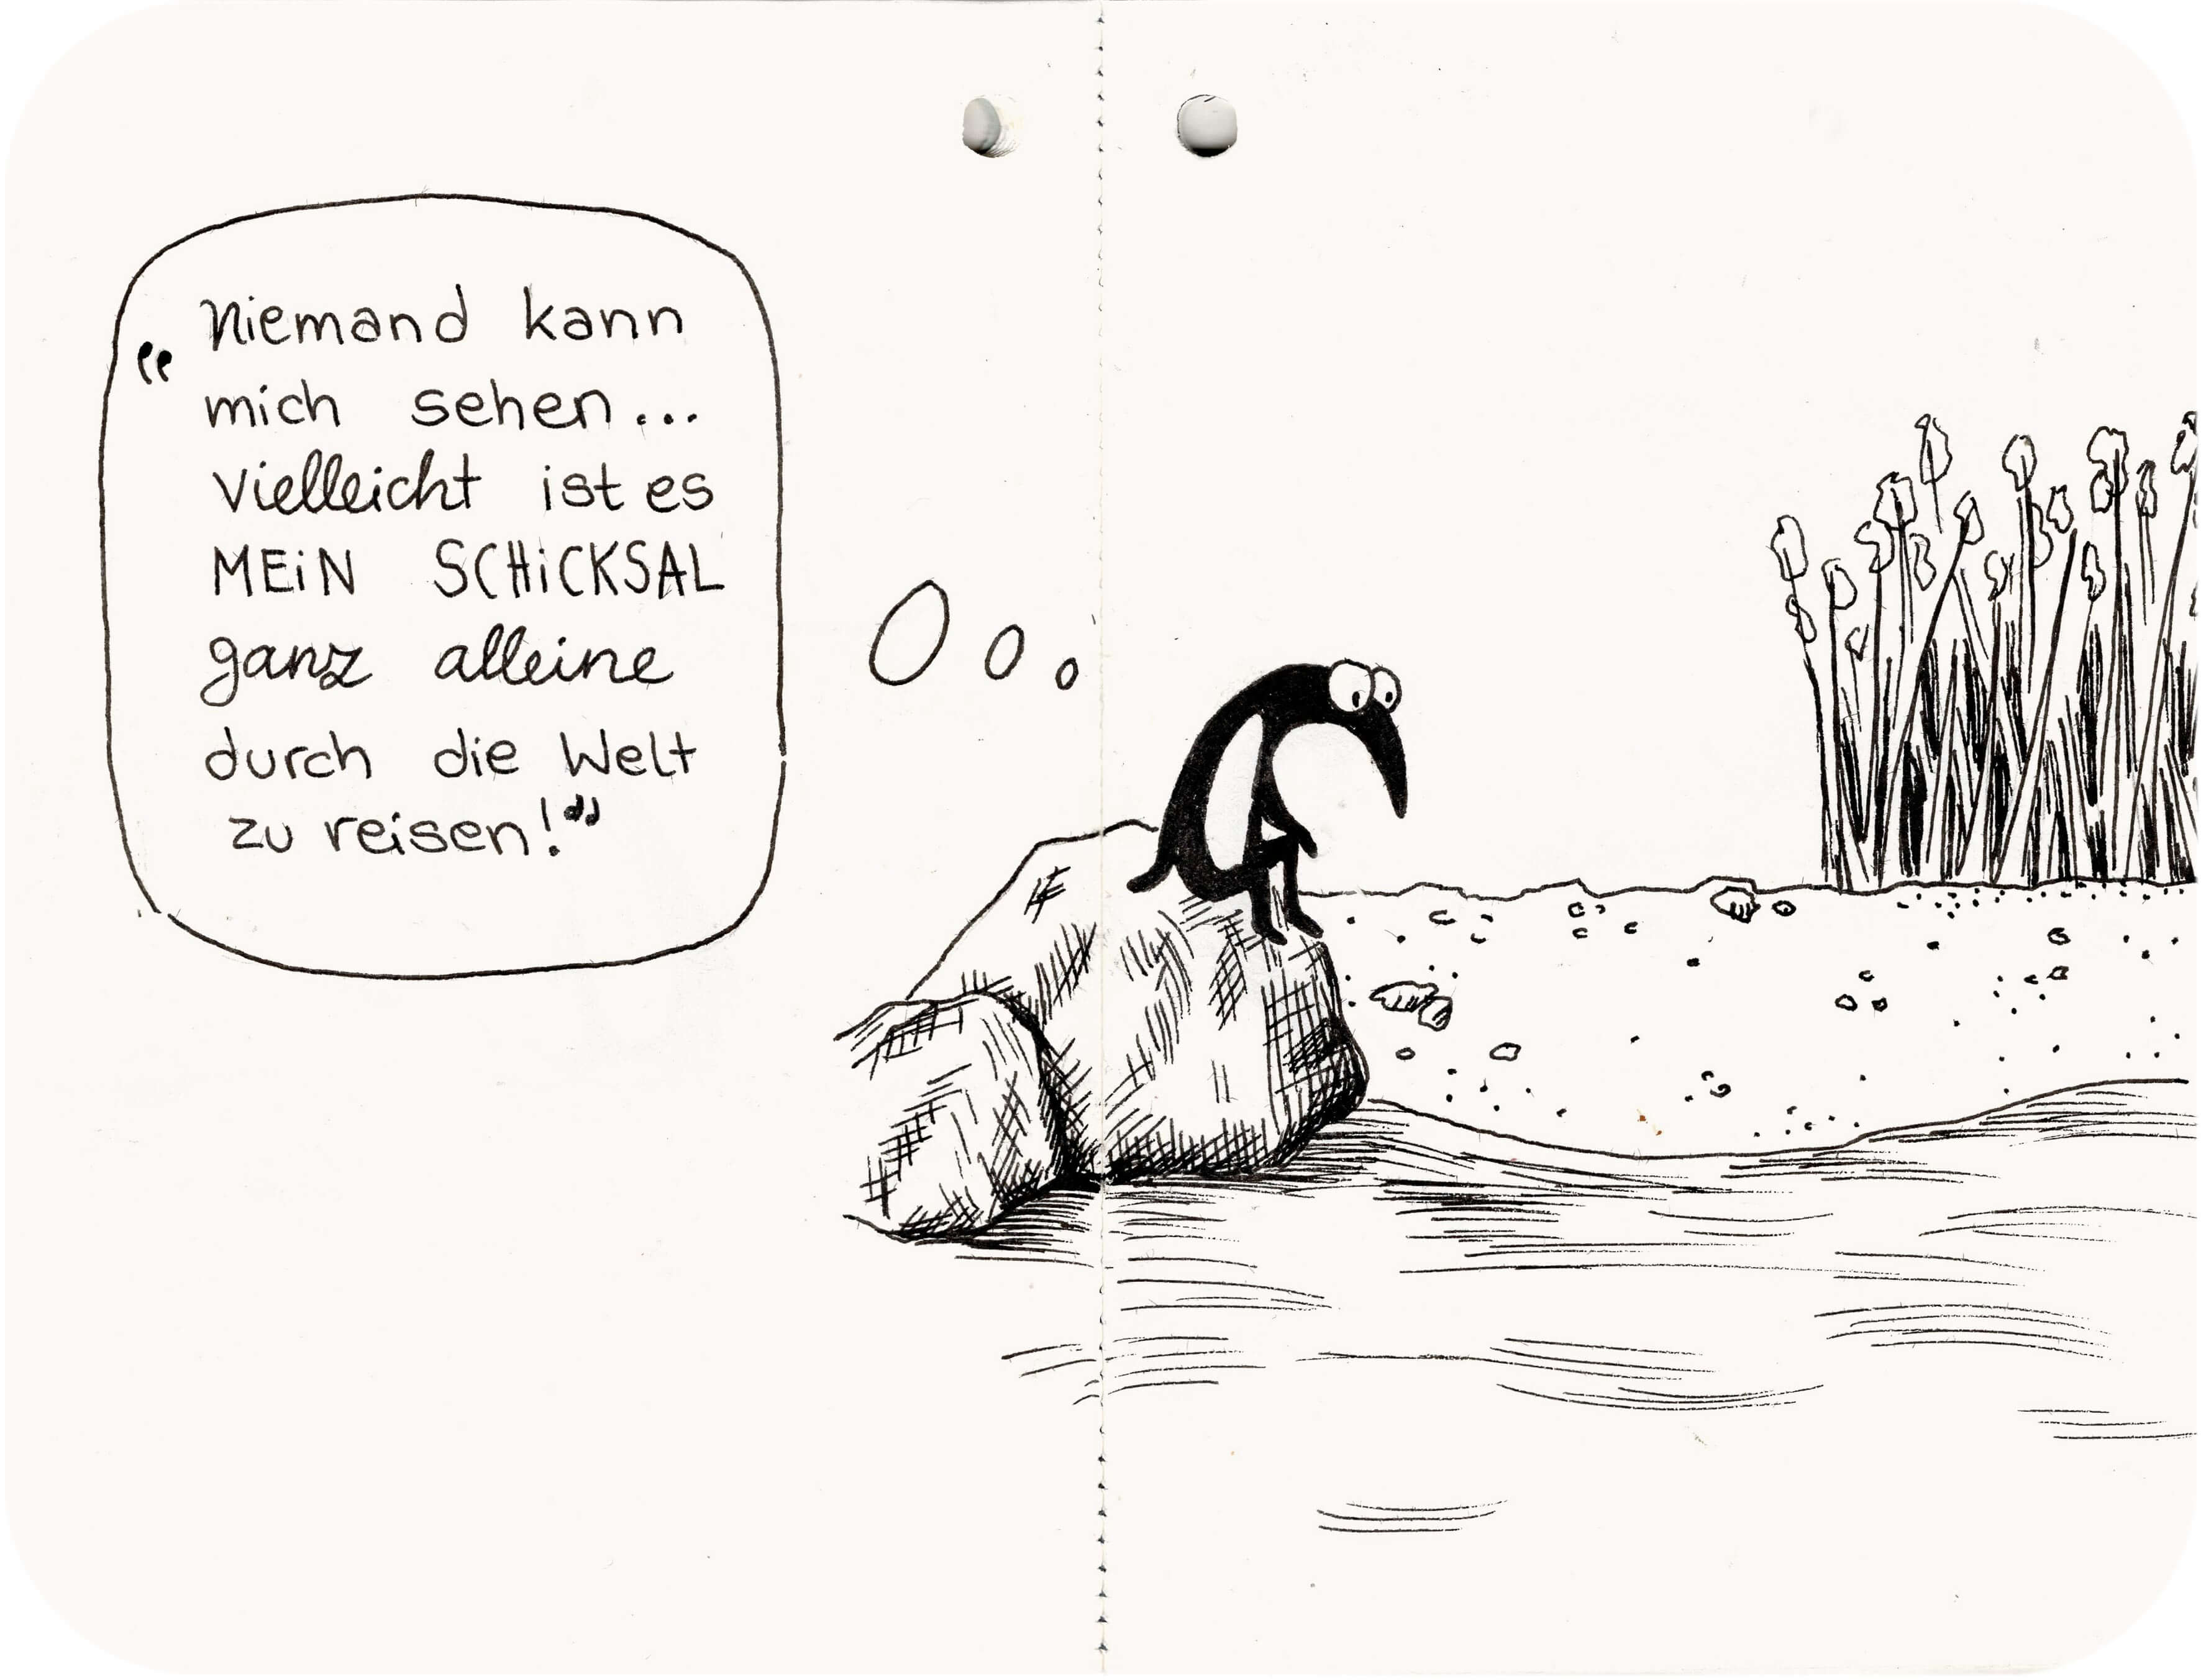 "Niemand kann
mich sehen...
vielleicht ist es
MEiN SCHiCKSAL
ganz alleine
durch die Welt
zu reisen!"